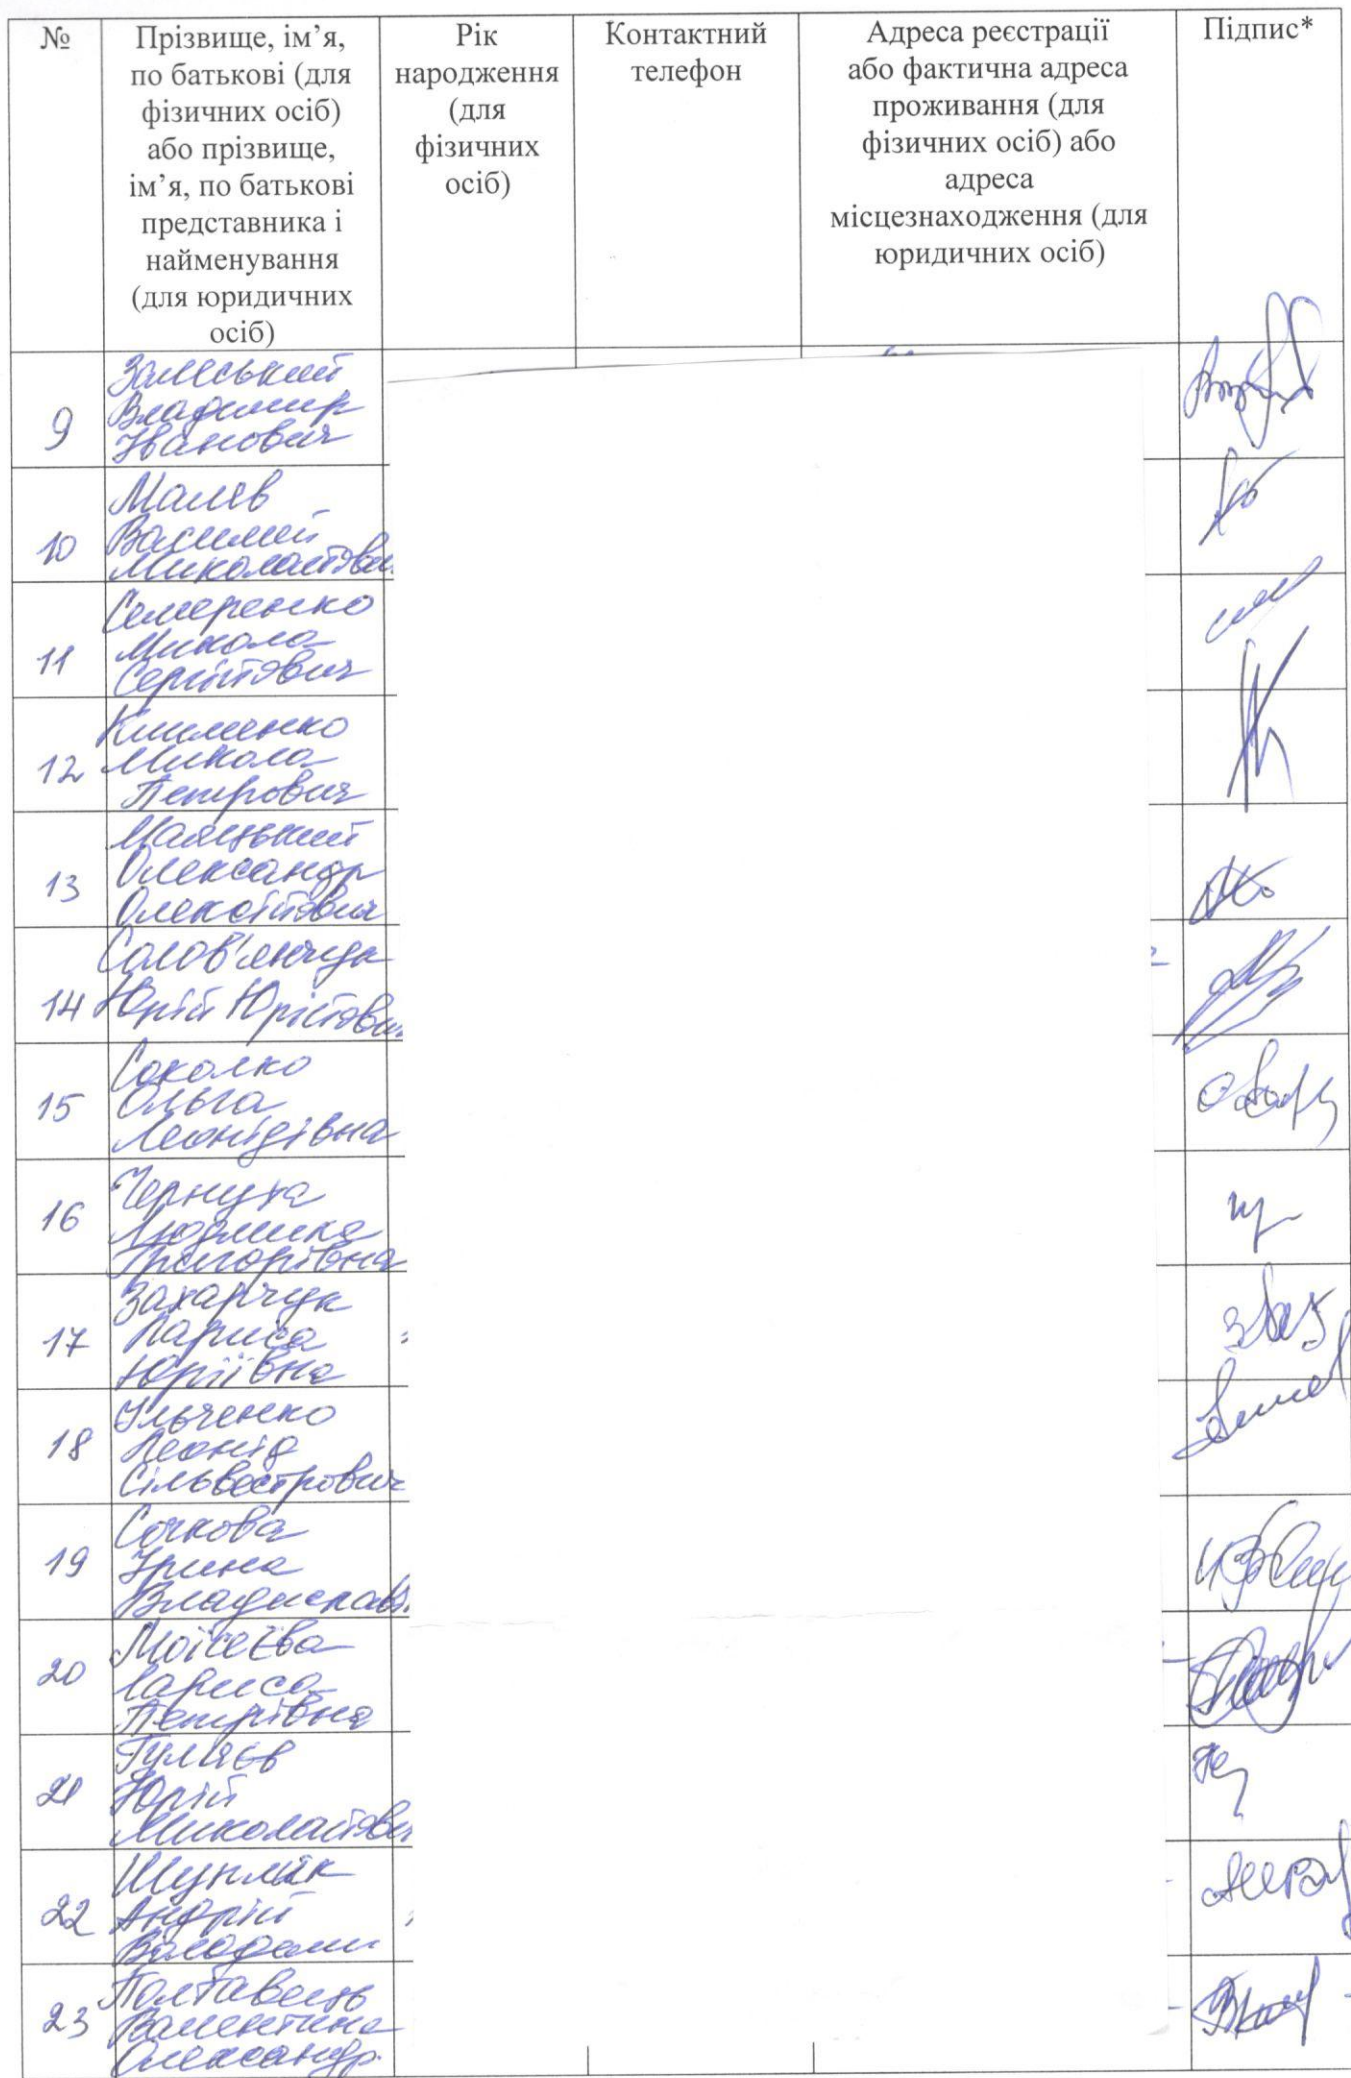 №
Прізвище, ім’я,
по батькові (для
фізичних осіб)
або прізвище,
ім’я, по батькові
представника і
найменування
(для юридичних
осіб)
Рік
народження
(для
фізичних
осіб)
Контактний
телефон
Адреса реєстрації
або фактична адреса
проживання (для
фізичних осіб) або
адреса
місцезнаходження (для
юридичних осіб)
Підпис*
9
Залеський
Владимир
Іванович
10
Малев
Василий
11
Семеренко
Микола
Сергійович
12
Микола
Петрович
13
Олександр
Олексійович
14
Солов'янчук
Юрій Юрійович
15
Соколко
Ольга
Леонідівна
16
Чернуха
Людмила
Григорівна
17
Захарчук
Лариса
Юріївна
18
Ільченко
Леонід
Сільвестрович
19
Сочкова
Ірина
20
Моісеєва
Лариса
Петрівна
21
Гуляєв
Юрій
22
Шупляк
Андрій
Володими
23
Полтавець
Валентина
Олександр.